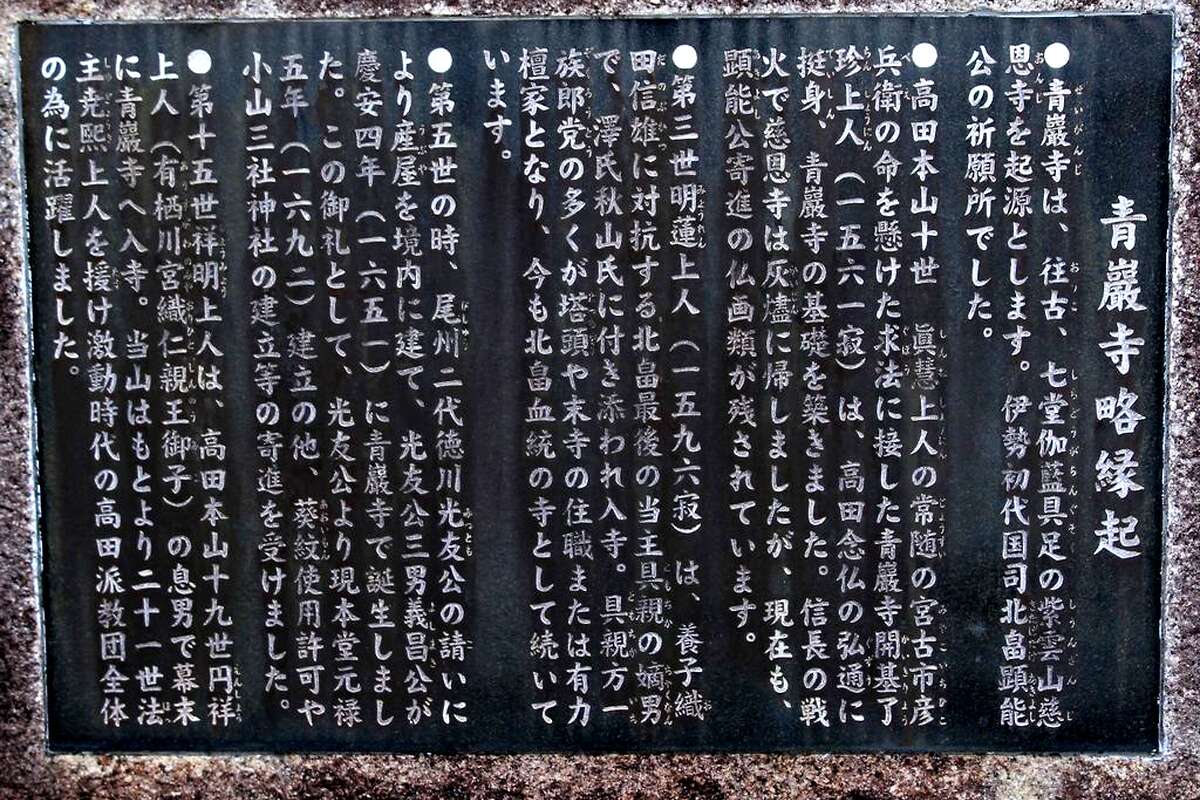 青巖寺略縁起
●青巖寺は、往古、七堂伽藍具足の紫雲山慈
恩寺を起源とします。伊勢初代国司北畠顕能
公の祈願所でした。
●高田本山十世　眞慧上人の常随の宮古市彦
兵衛の命を懸けた求法に接した青巖寺開基了
珍上人（一五六一寂）は、高田念仏の弘通に
挺身、青巖寺の基礎を築きました。信長の戦
火で慈恩寺は灰燼に帰しましたが、現在も、
顕能公寄進の仏画類が残されています。
●第三世明蓮上人（一五九六寂）は、養子織
田信雄に対抗する北畠最後の当主具親の嫡男
で、澤氏秋山氏に付き添われ入寺。具親方一
族郎党の多くが塔頭や末寺の住職または有力
檀家となり、今も北畠血統の寺として続いて
います。
●第五世の時、尾州二代徳川光友公の請いに
より産屋を境内に建て、光友公三男義昌公が
慶安四年（一六五一）に青巖寺で誕生しまし
た。この御礼として、光友公より現本堂元禄
五年（一六九二）建立の他、葵紋使用許可や
小山三社神社の建立等の寄進を受けました。
●第十五世祥明上人は、高田本山十九世円祥
上人（有栖川宮織仁親王御子）の息男で幕末
に青巖寺へ入寺。当山はもとより二十一世法
主尭熙上人を援け激動時代の高田派教団全体
の為に活躍しました。